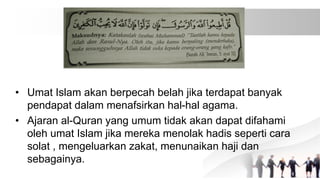 قُلْ أَطِيعُوا اللَّهَ وَالرَّسُولَ فَإِنْ تَوَلَّوْا فَإِنَّ اللَّهَ لَا يُحِبُّ الْكَافِرِينَ
Maksudnya: Katakanlah (wahai Muhammad) "Taatlah kamu kepada
Allah dan Rasul-Nya. Oleh itu, jika kamu berpaling (menderhaka),
maka sesungguhnya Allah tidak suka kepada orang-orang yang kafir."
(Surah Ali 'Imran, 3: ayat 32)
• Umat Islam akan berpecah belah jika terdapat banyak
pendapat dalam menafsirkan hal-hal agama.
• Ajaran al-Quran yang umum tidak akan dapat difahami
oleh umat Islam jika mereka menolak hadis seperti cara
solat , mengeluarkan zakat, menunaikan haji dan
sebagainya.